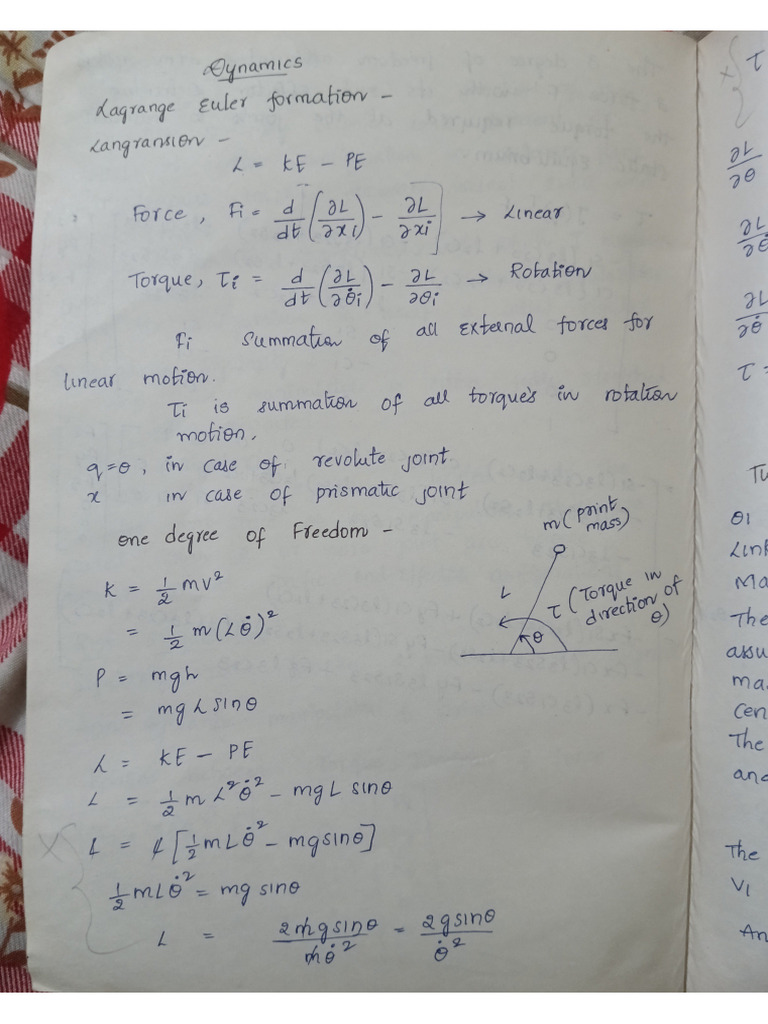 Dynamics
Lagrange Euler formation -
Langransion -
L = KE - PE
Force, Fi = d/dt (∂L/∂xi) - ∂L/∂xi] → Linear
Torque, τi = d/dt (∂L/∂θ̇i) - ∂L/∂θi → Rotation
Fi summation of all external forces for
linear motion.
τi is summation of all torque's in rotation
motion.
q=θ, in case of revolute joint
x in case of prismatic joint
one degree of Freedom -
m (print
mass)
L
τ (Torque in
direction of
θ)
θ
K = 1/2 mv²
= 1/2 m(Lθ̇)²
P = mgh
= mgLsinθ
L = KE - PE
L = 1/2 m L²θ̇² - mgL sinθ
L = L[1/2 mLθ̇² - mgsinθ]
1/2 mLθ̇² = mg sinθ
L = 2mgsinθ/mθ̇² = 2gsinθ/θ̇²
τ
∂L/∂θ
∂L/∂θ̇
∂L/∂θ̇
τ =
θ1
Link
Ma
The
assu
ma
cen
The
and
The
V1
An